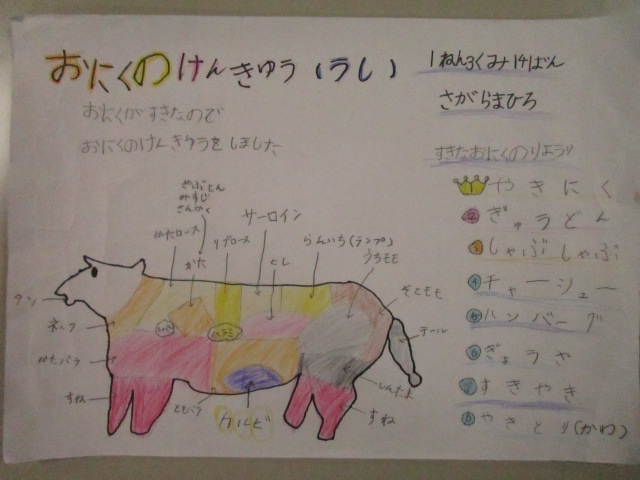 おにくのけんきゅう(うし)
1ねん3くみ14ばん
さがらまひろ
おにくがすきなので
おにくのけんきゅうをしました
すきなおにくのりょうり
やきにく
2 ぎゅうどん
3 しゃぶしゃぶ
4 チャーシュー
5 ハンバーグ
6 ぎょうざ
7 すきやき
8 やきとり(かわ)
ざぶとん
みすじ
さんかく
かたロース
かた
リブロース
サーロイン
ヒレ
らんいち(ランプ)
うちもも
そともも
タン
ネック
かたバラ
すね
ハラミ
テール
しんたま
ともバラ
カルビ
すね